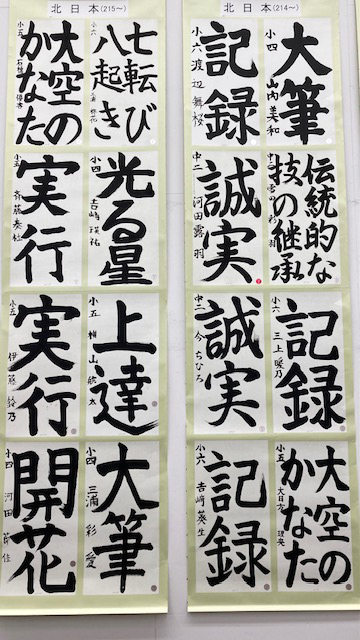 北日本(214〜)
大筆
小四 山内美和
記録
小六 渡辺舞桜
伝統的な
技の継承
中二
誠実
中二 河田露羽
記録
小六 三上暖乃
誠実
中二 今ちひろ
大空の
かなた
小五 大日方
記録
小六 吉崎葵生
北日本(215〜)
七転び
八起き
小六
大空の
かなた
小五
光る星
小四 吉崎瑛祐
実行
小五 斉藤
上達
小五 相山航太
実行
小五 伊藤鈴乃
大筆
小四 三浦彩愛
開花
小四 河田